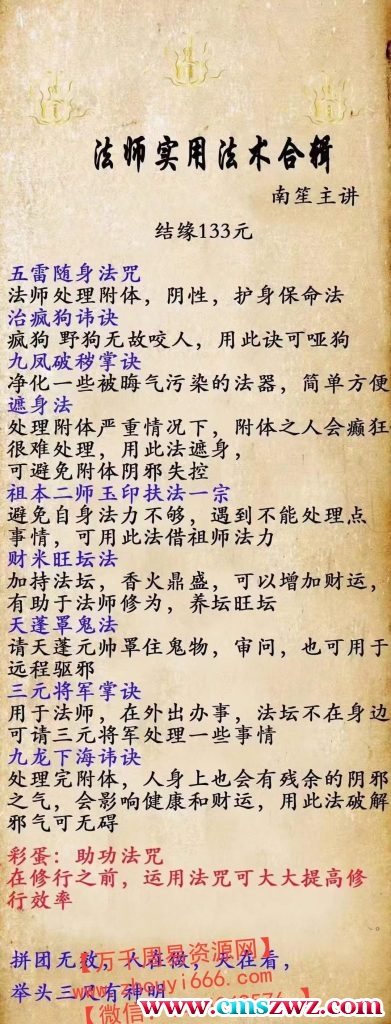 法师实用法术合辑
南笙主讲
结缘133元
五雷随身法咒
法师处理附体，阴性，护身保命法
治疯狗讳诀
疯狗 野狗无故咬人，用此诀可哑狗
九凤破秽掌诀
净化一些被晦气污染的法器，简单方便
遮身法
处理附体严重情况下，附体之人会癫狂
很难处理，用此法遮身，
可避免附体阴邪失控
祖本二师玉印扶法一宗
避免自身法力不够，遇到不能处理点
事情，可用此法借祖师法力
财米旺坛法
加持法坛，香火鼎盛，可以增加财运，
有助于法师修为，养坛旺坛
天蓬罩鬼法
请天蓬元帅罩住鬼物，审问，也可用于
远程驱邪
三元将军掌诀
用于法师，在外出办事，法坛不在身边
可请三元将军处理一些事情
九龙下海讳诀
处理完附体，人身上也会有残余的阴邪
之气，会影响健康和财运，用此法破解
邪气可无碍
彩蛋：助功法咒
在修行之前，运用法咒可大大提高修
行效率
拼团无效，人在做，天在看，
举头三尺有神明
【万千周易资源网】
www.zhouyi666.com
【微信：
www.cmszwz.com